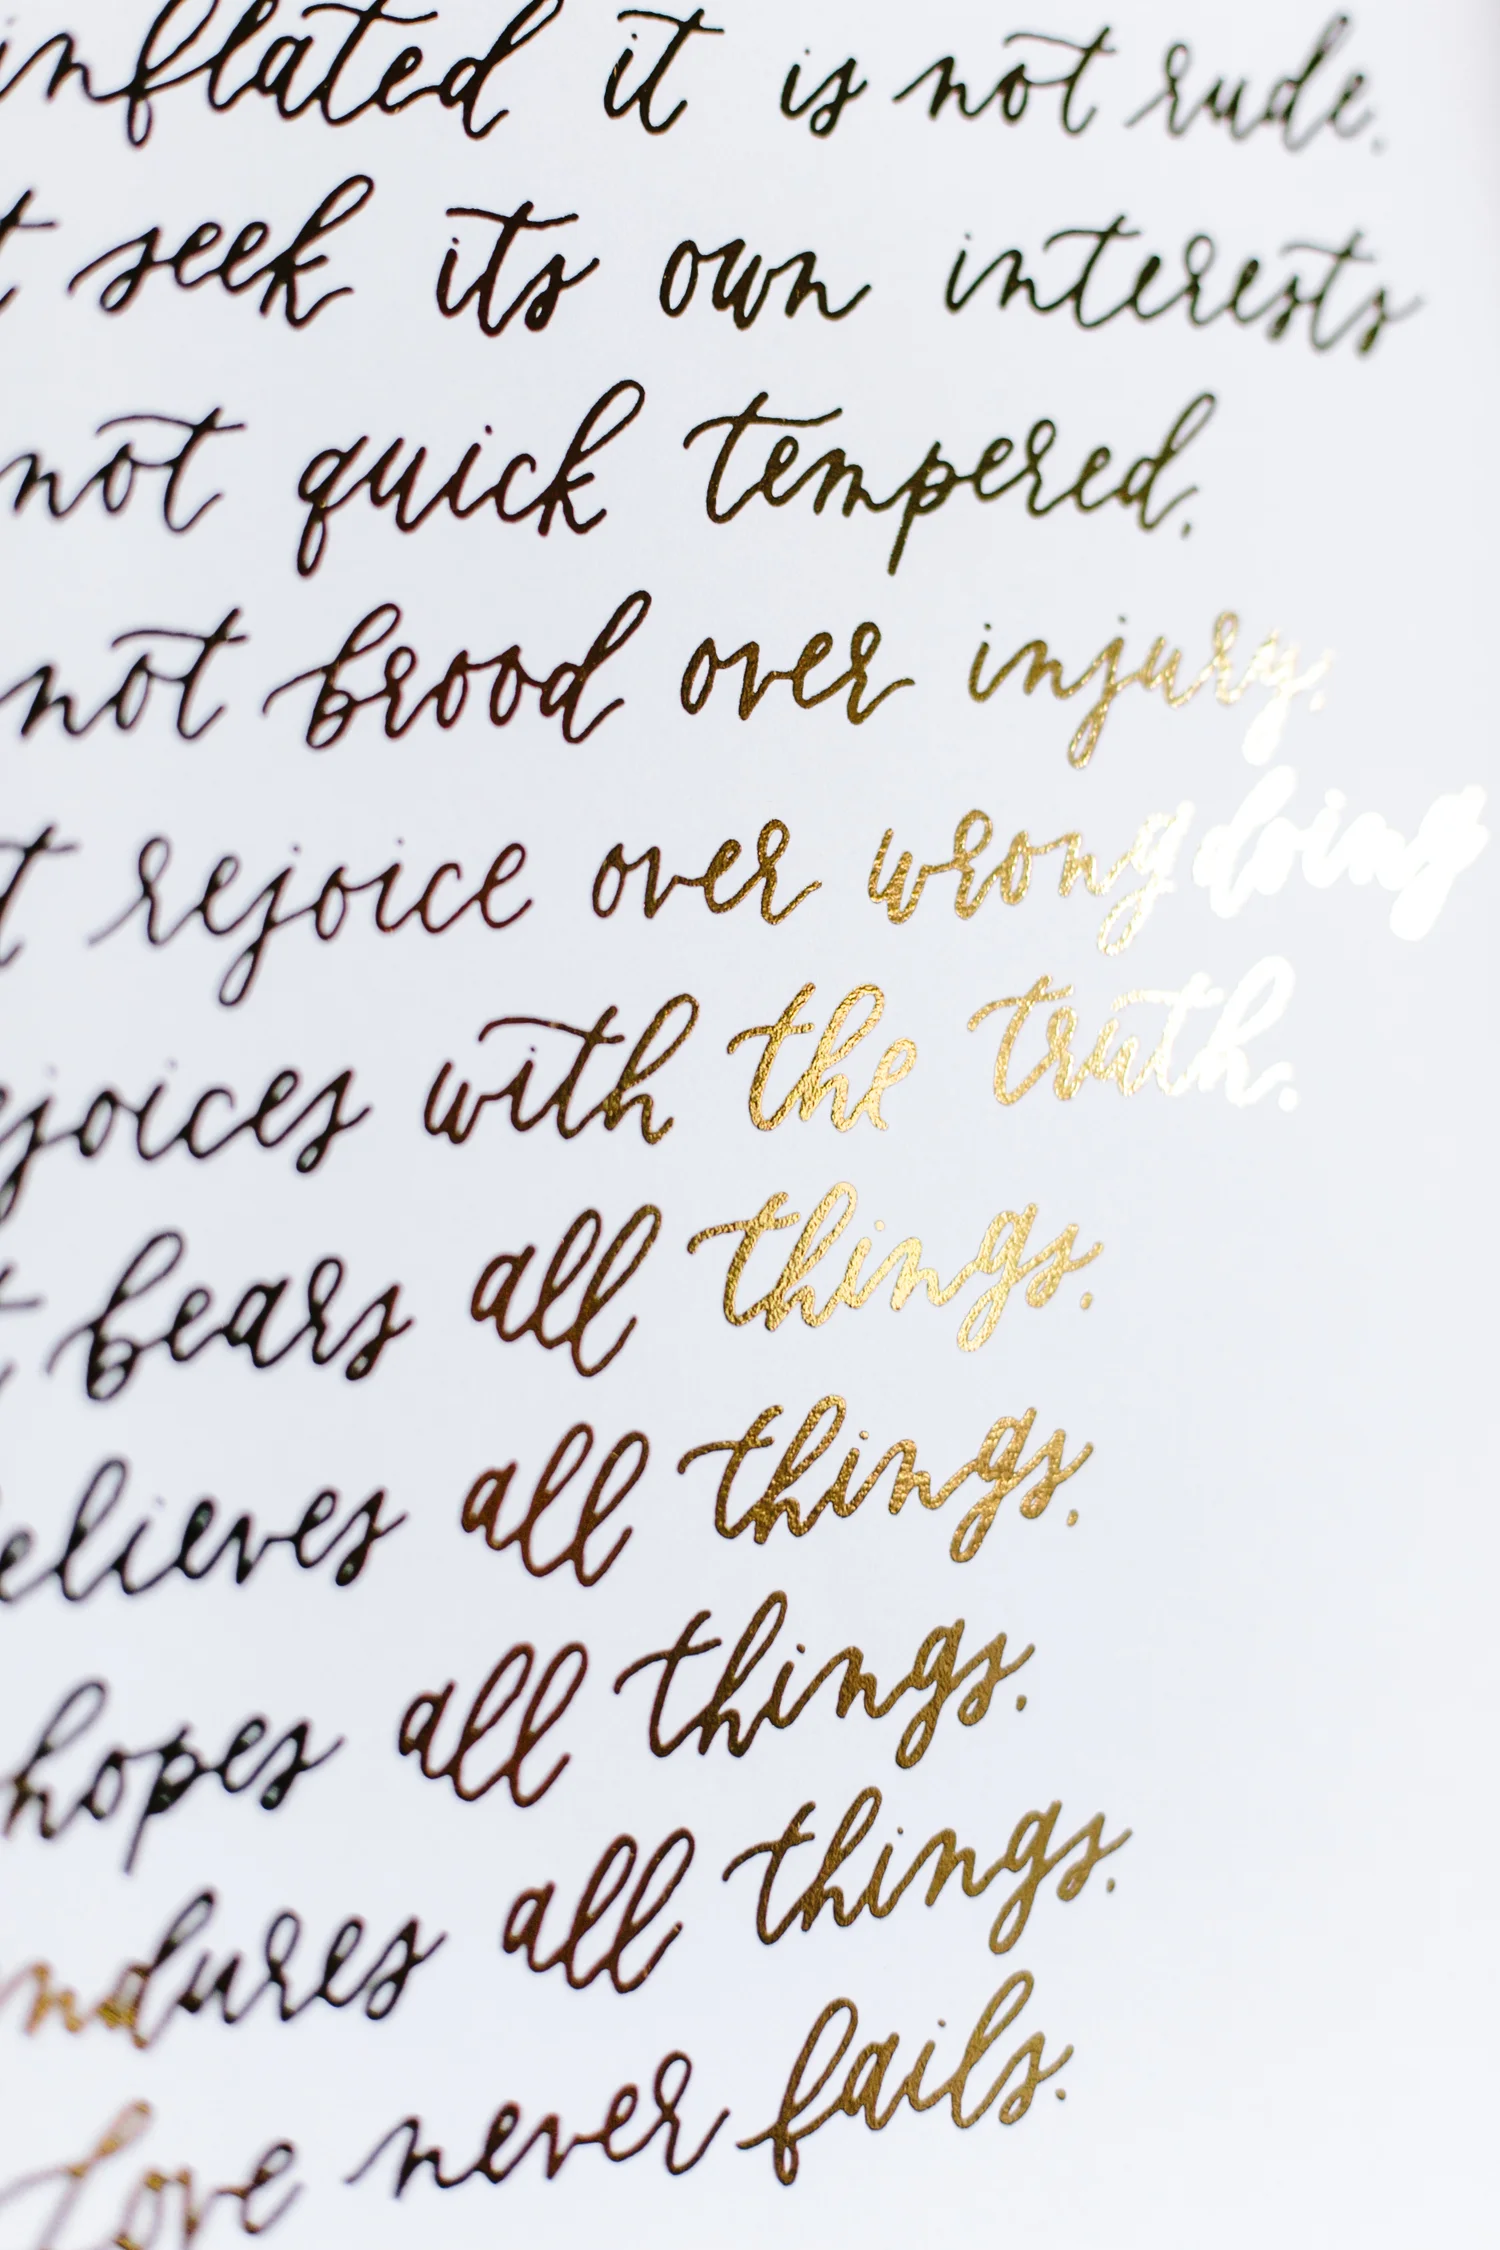 inflated it is not rude.
t seek its own interests
not quick tempered.
not brood over injury.
t rejoice over wrongdoing
ejoices with the truth.
t bears all things.
elieves all things.
hopes all things.
ndures all things.
Love never fails.